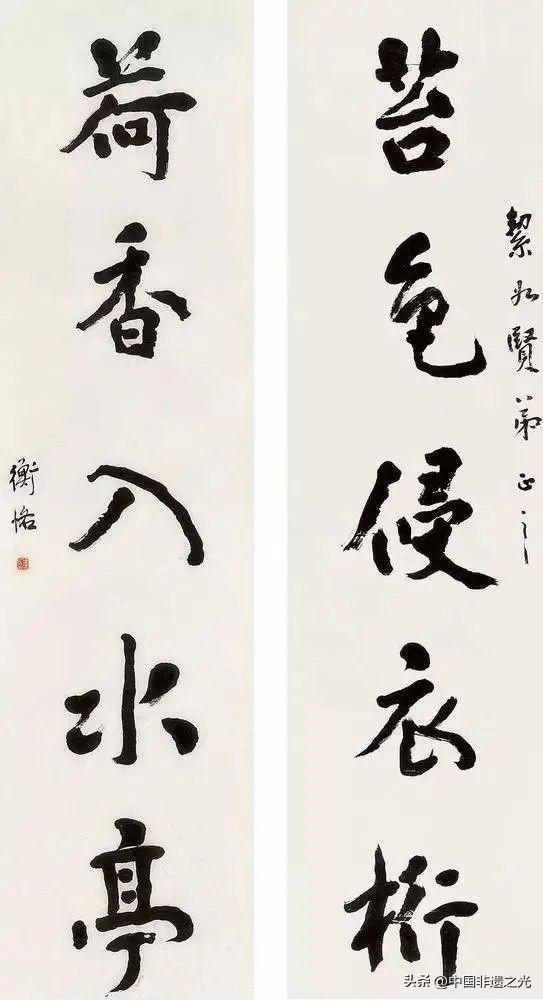 苔色侵衣桁
絜如賢弟正之
荷香入水亭
衡恪
头条 @中国非遗之光